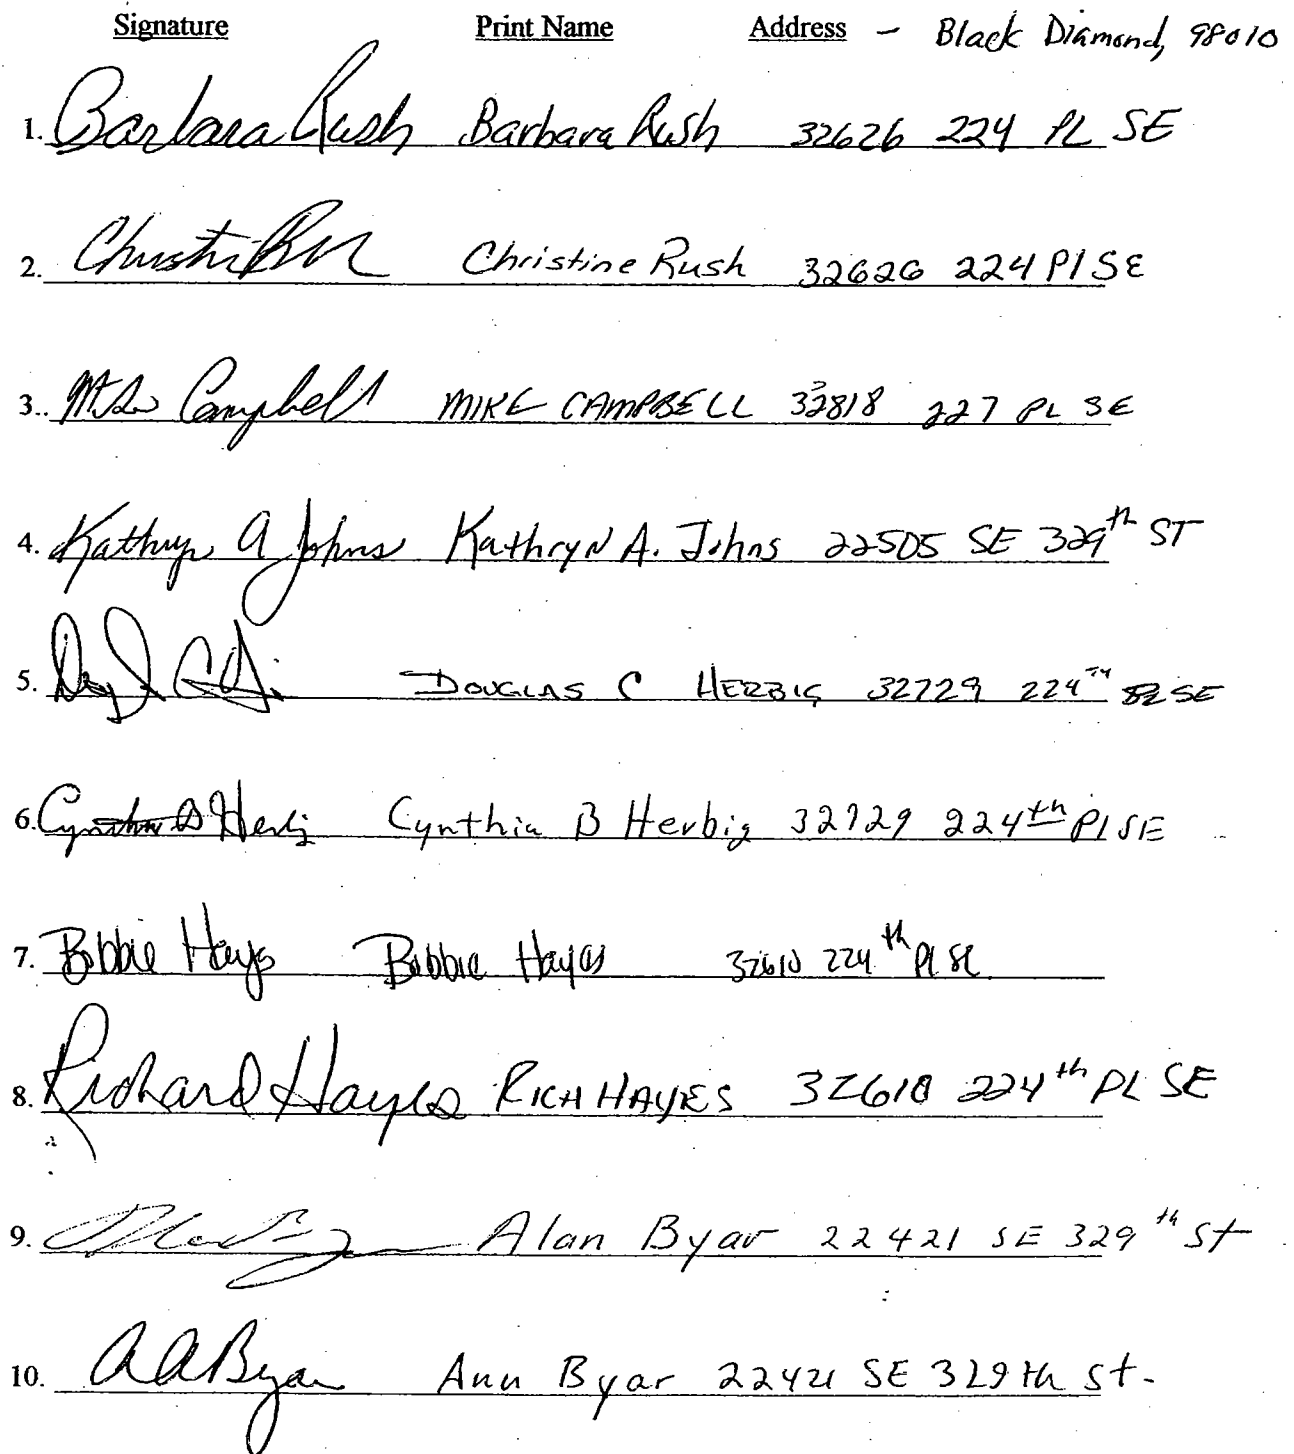 Signature Print Name Address - Black Diamond, 98010
1. Barbara Rush Barbara Rush 32626 224 PL SE
2. Christine Rush 32626 224 Pl SE
3.. Mike Campbell MIKE CAMPBELL 32818 227 PL SE
4. Kathryn A Johns Kathryn A. Johns 22505 SE 329th ST
5. DOUGLAS C HERBIG 32729 224TH PL SE
6. Cynthia B Herbig Cynthia B Herbig 32729 224th Pl SE
7. Bobbie Hayes Bobbie Hayes 32610 224th Pl SE
8. Richard Hayes RICH HAYES 32610 224th PL SE
9. Alan Byar 22421 SE 329th St
10. A A Byar Ann Byar 22421 SE 329th St.